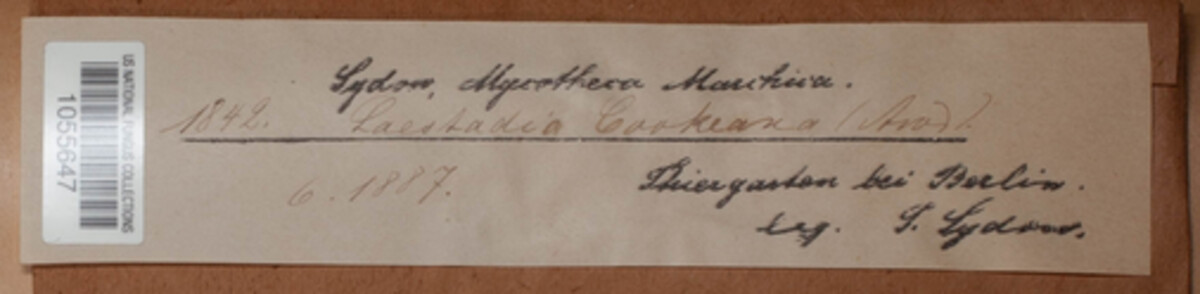 US NATIONAL FUNGUS COLLECTIONS
1055647
Sydow, Mycotheca Marchica.
1842. Laestadia Cookeana (Awd).
6. 1887.
Thiergarten bei Berlin.
leg. P. Sydow.